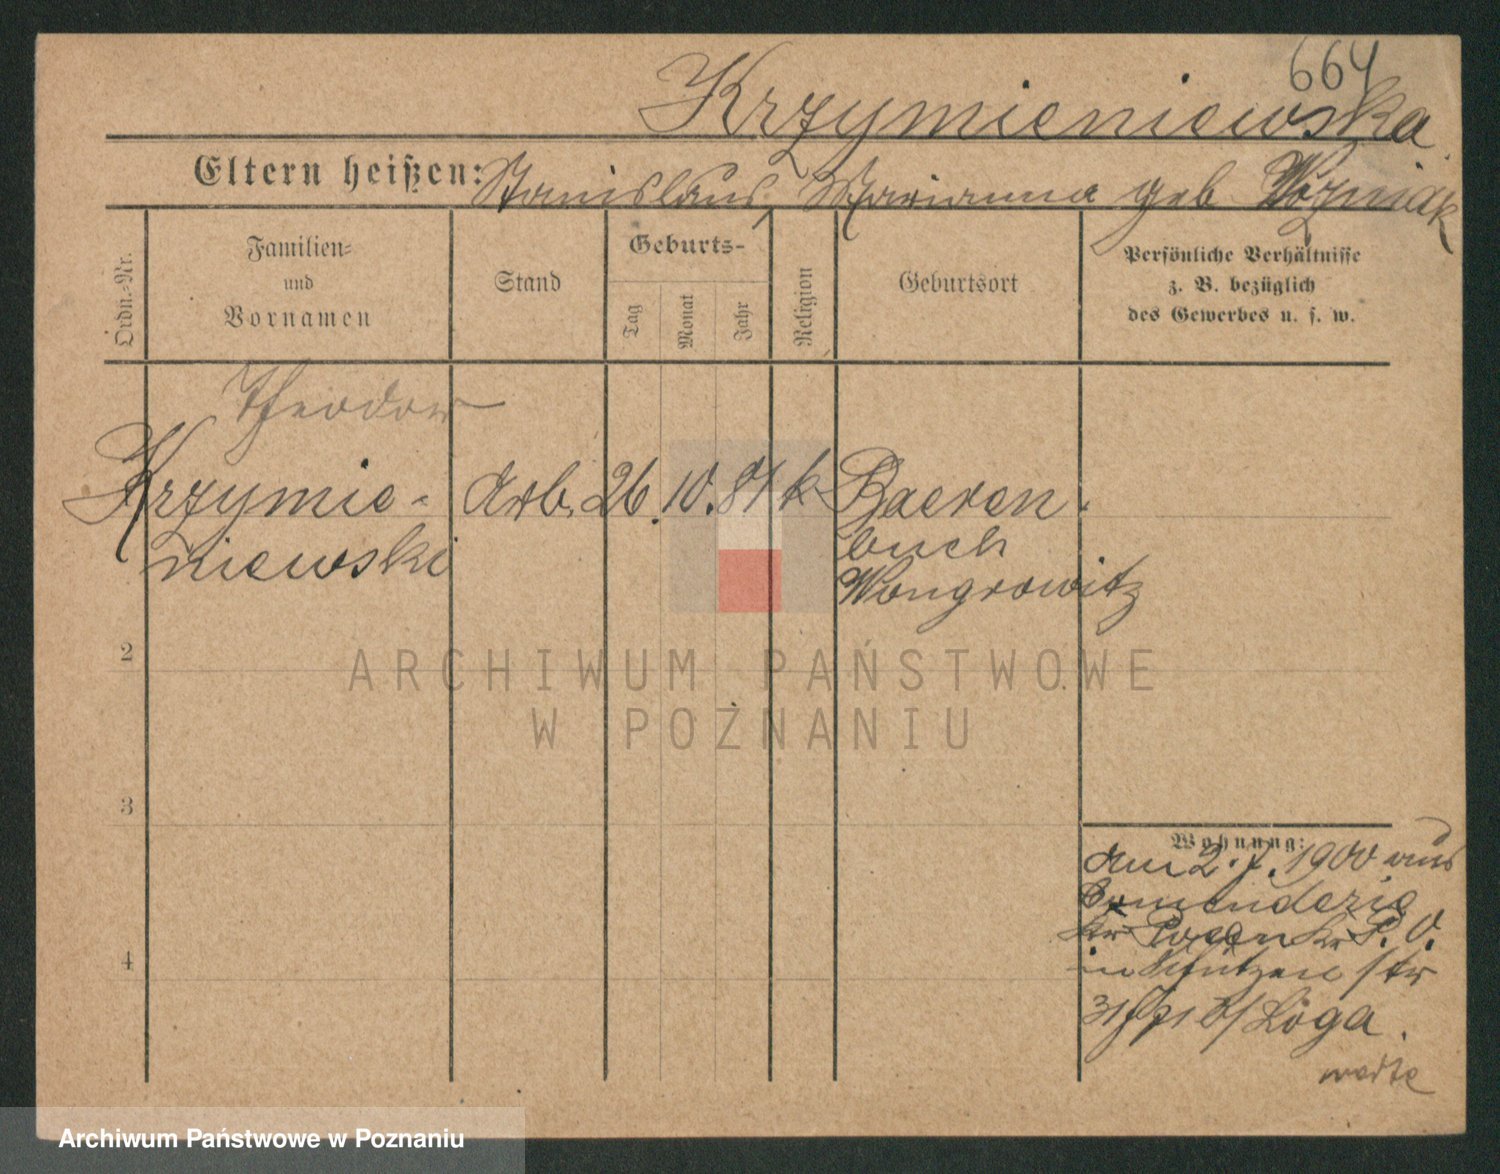 664
Krzymieniewska
Eltern heißen: Stanislaus, Marianna geb Wozniak
Ordn.-Nr.
Familien-
und
Vornamen
Stand
Geburts-
Tag
Monat
Jahr
Religion
Geburtsort
Persönliche Verhältnisse
z. B. bezüglich
des Gewerbes u. s. w.
Theodor
Krzymie- Arb. 26. 10. 81 k Baeren
niewski buch
Wongrowitz
2
3
4
Wohnung:
am 2. 7. 1900 aus
Comenderie
str Posen Kr P. O.
in Schützen str
31 b/ Loga.
ARCHIWUM PAŃSTWOWE
W POZNANIU
Archiwum Państwowe w Poznaniu